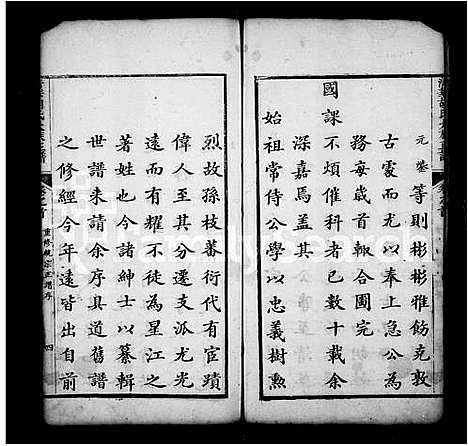 元鉴等則彬彬雅飭克敦
古處而以奉上急公為
務每歲首輙合圖完
國課不煩催科者已數十載余
深嘉焉盖其
始祖常侍公學以忠義樹勲
烈故孫枝蕃衍代有宦蹟
偉人至其分遷支派尤光
遠而有耀不徒為星江之
著姓也今諸紳士以纂輯
世譜来請余序具道舊譜
之修經今年遠皆出自前
重修統宗正譜序
四